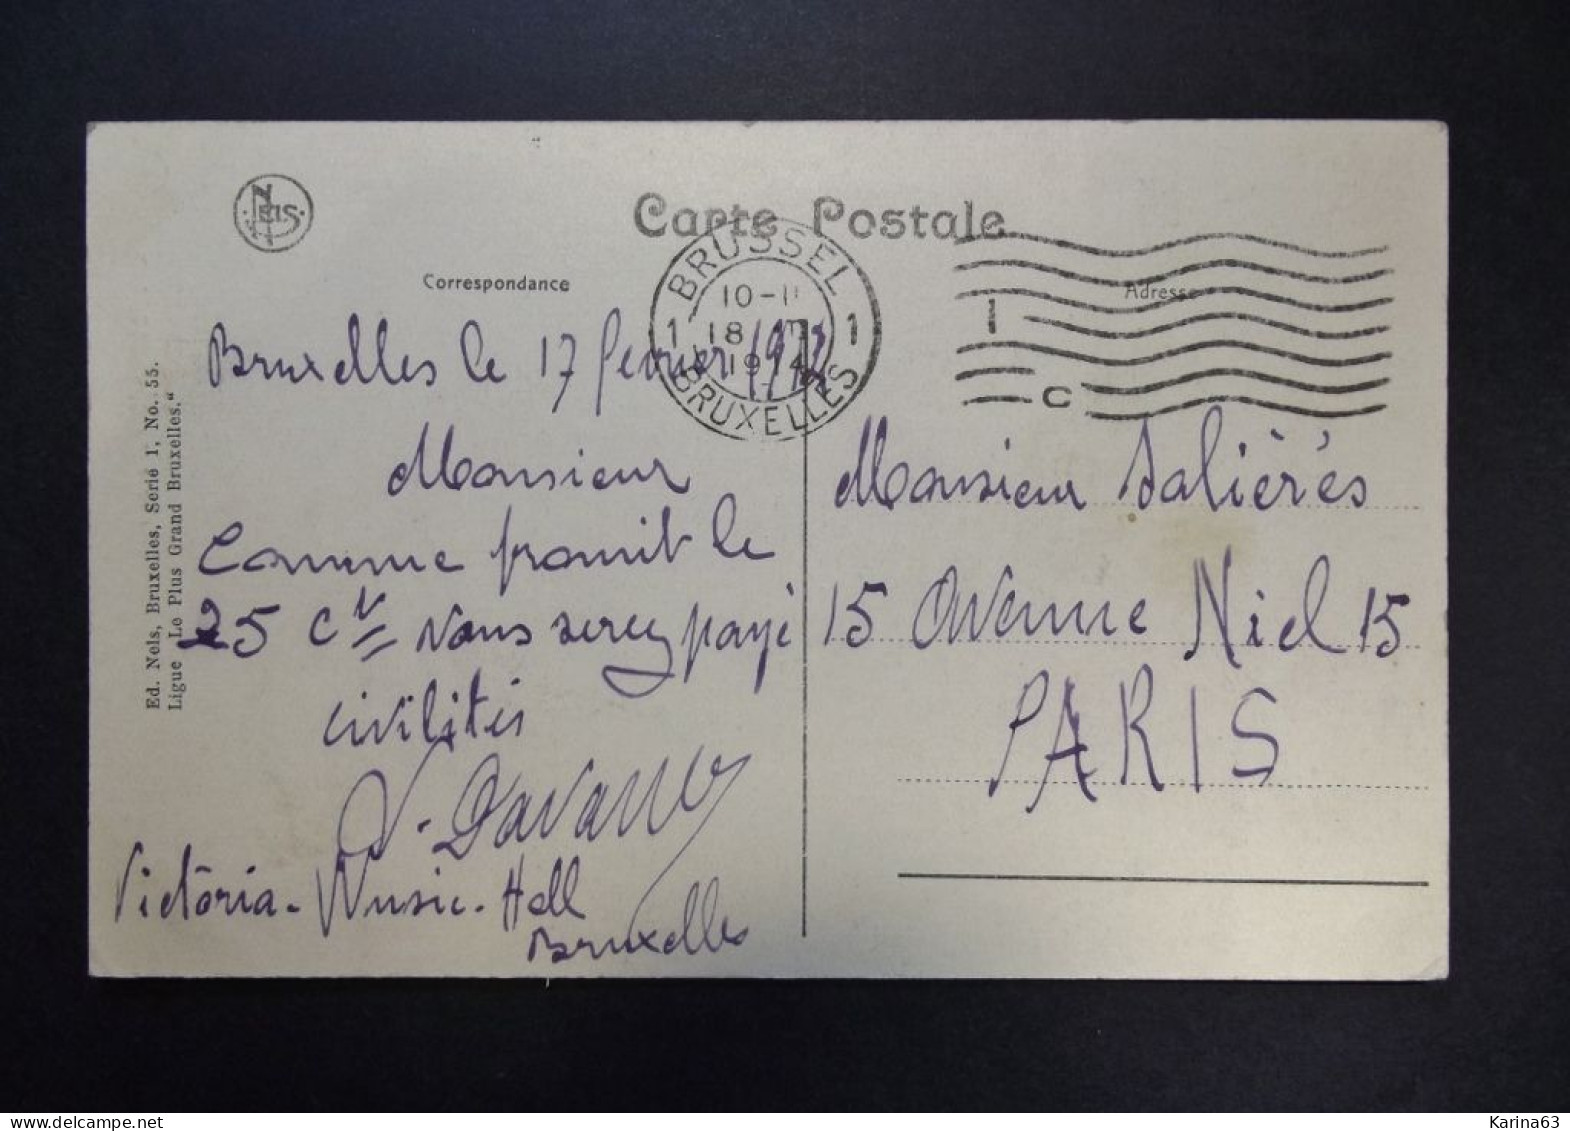 NELS
Carte Postale
Correspondance
Adresse
BRUSSEL
10-11
1 18 FE 1
1914
BRUXELLES
1
C
Ed. Nels, Bruxelles, Serié 1, No. 55.
Ligue „Le Plus Grand Bruxelles.“
Bruxelles le 17 fevrier 1914
Monsieur
Comme promit le
25 ct vous serez payé
civilités
Victoria-Music-Hall
Bruxelles
Monsieur Salières
15 Avenue Niel 15
PARIS
Karina63